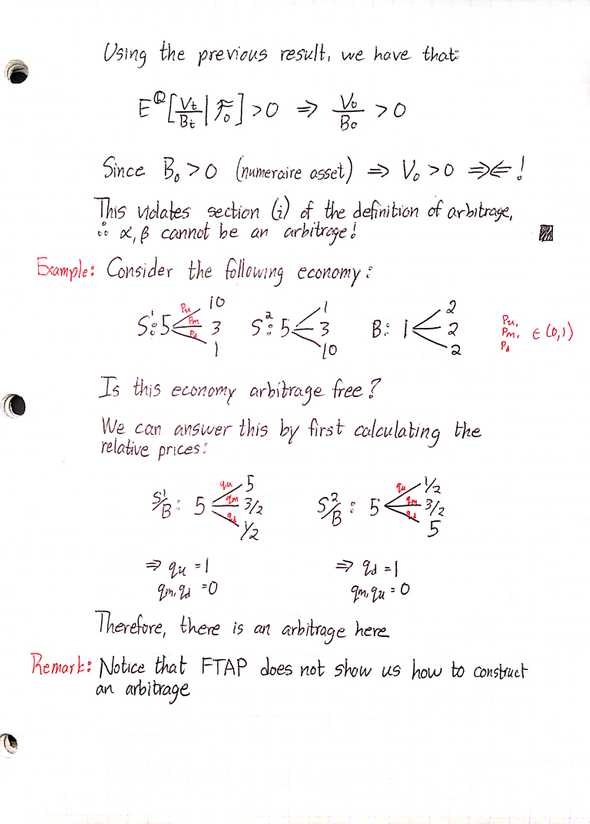 Using the previous result, we have that:
E^Q[V_t/B_t | F_0] > 0 ⇒ V_0/B_0 > 0
Since B_0 > 0 (numeraire asset) ⇒ V_0 > 0 ⇒⇐ !
This violates section (i) of the definition of arbitrage,
∴ α, β cannot be an arbitrage!
Example: Consider the following economy:
S^1: 5 p_u 10 p_m 3 p_d 1 S^2: 5 1 3 10 B: 1 2 2 2 p_u, p_m, p_d ∈ (0,1)
Is this economy arbitrage free?
We can answer this by first calculating the
relative prices:
S^1/B: 5 q_u 5 q_m 3/2 q_d 1/2 S^2/B: 5 q_u 1/2 q_m 3/2 q_d 5
⇒ q_u = 1 ⇒ q_d = 1
q_m, q_d = 0 q_m, q_u = 0
Therefore, there is an arbitrage here
Remark: Notice that FTAP does not show us how to construct
an arbitrage